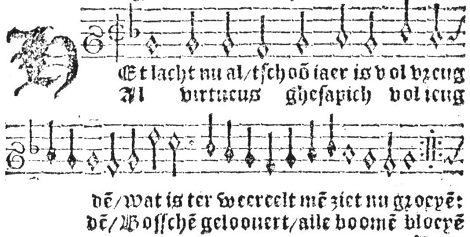 HEt lacht nu al/tschoō iaer is vol vreug
Al virtueus ghesapich vol ieug
dē/wat is ter weereelt mē ziet nu groeyē:
dē/Bosschē geloouert/alle boomē bloeyē